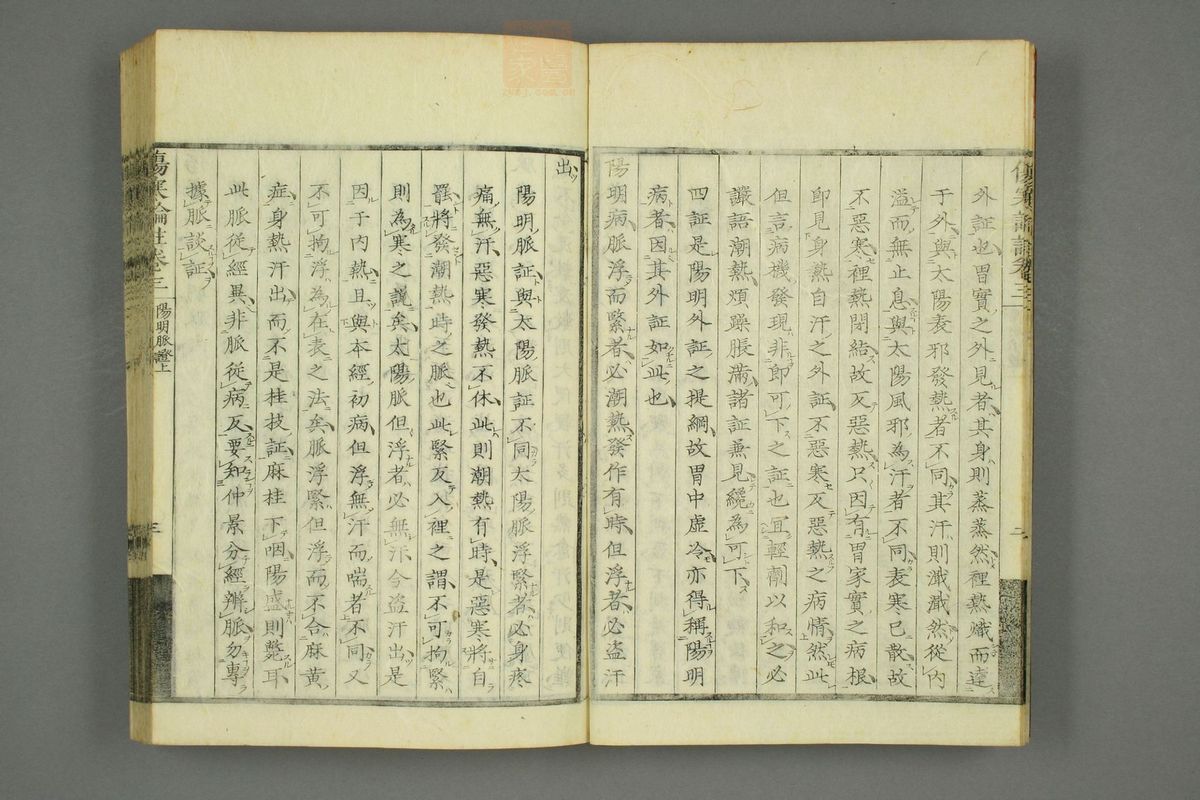 外証也胃實之外見者其身則蒸蒸然裡熱熾而達
于外與太陽表邪發熱者不同其汗則濈濈然從内
溢而無止息與太陽風邪為汗者不同表寒已散故
不惡寒裡熱閉結故反惡熱只因有胃家實之病根
即見身熱自汗之外証不惡寒反惡熱之病情然此
但言病機發現非即可下之証也宜輕劑以和之必
譫語潮熱煩躁脹滿諸証兼見纔為可下
四証是陽明外証之提綱故胃中虚冷亦得稱陽明
病者因其外証如此也
陽明病脈浮而緊者必潮熱發作有時但浮者必盗汗
出
陽明脈証與太陽脈証不同太陽脈浮緊者必身疼
痛無汗惡寒發熱不休此則潮熱有時是惡寒將自
罷將發潮熱時之脈也此緊反入裡之謂不可拘緊
則為寒之説矣太陽脈但浮者必無汗今盗汗出是
因于内熱且與本經初病但浮無汗而喘者不同又
不可拘浮為在表之法矣脈浮緊但浮而不合麻黄
症身熱汗出而不是桂枝証麻桂下咽陽盛則斃耳
此脈從經異非脈從病反要知仲景分經辨脈勿專
據脈談証
傷寒論註卷三 陽明脈證上 三